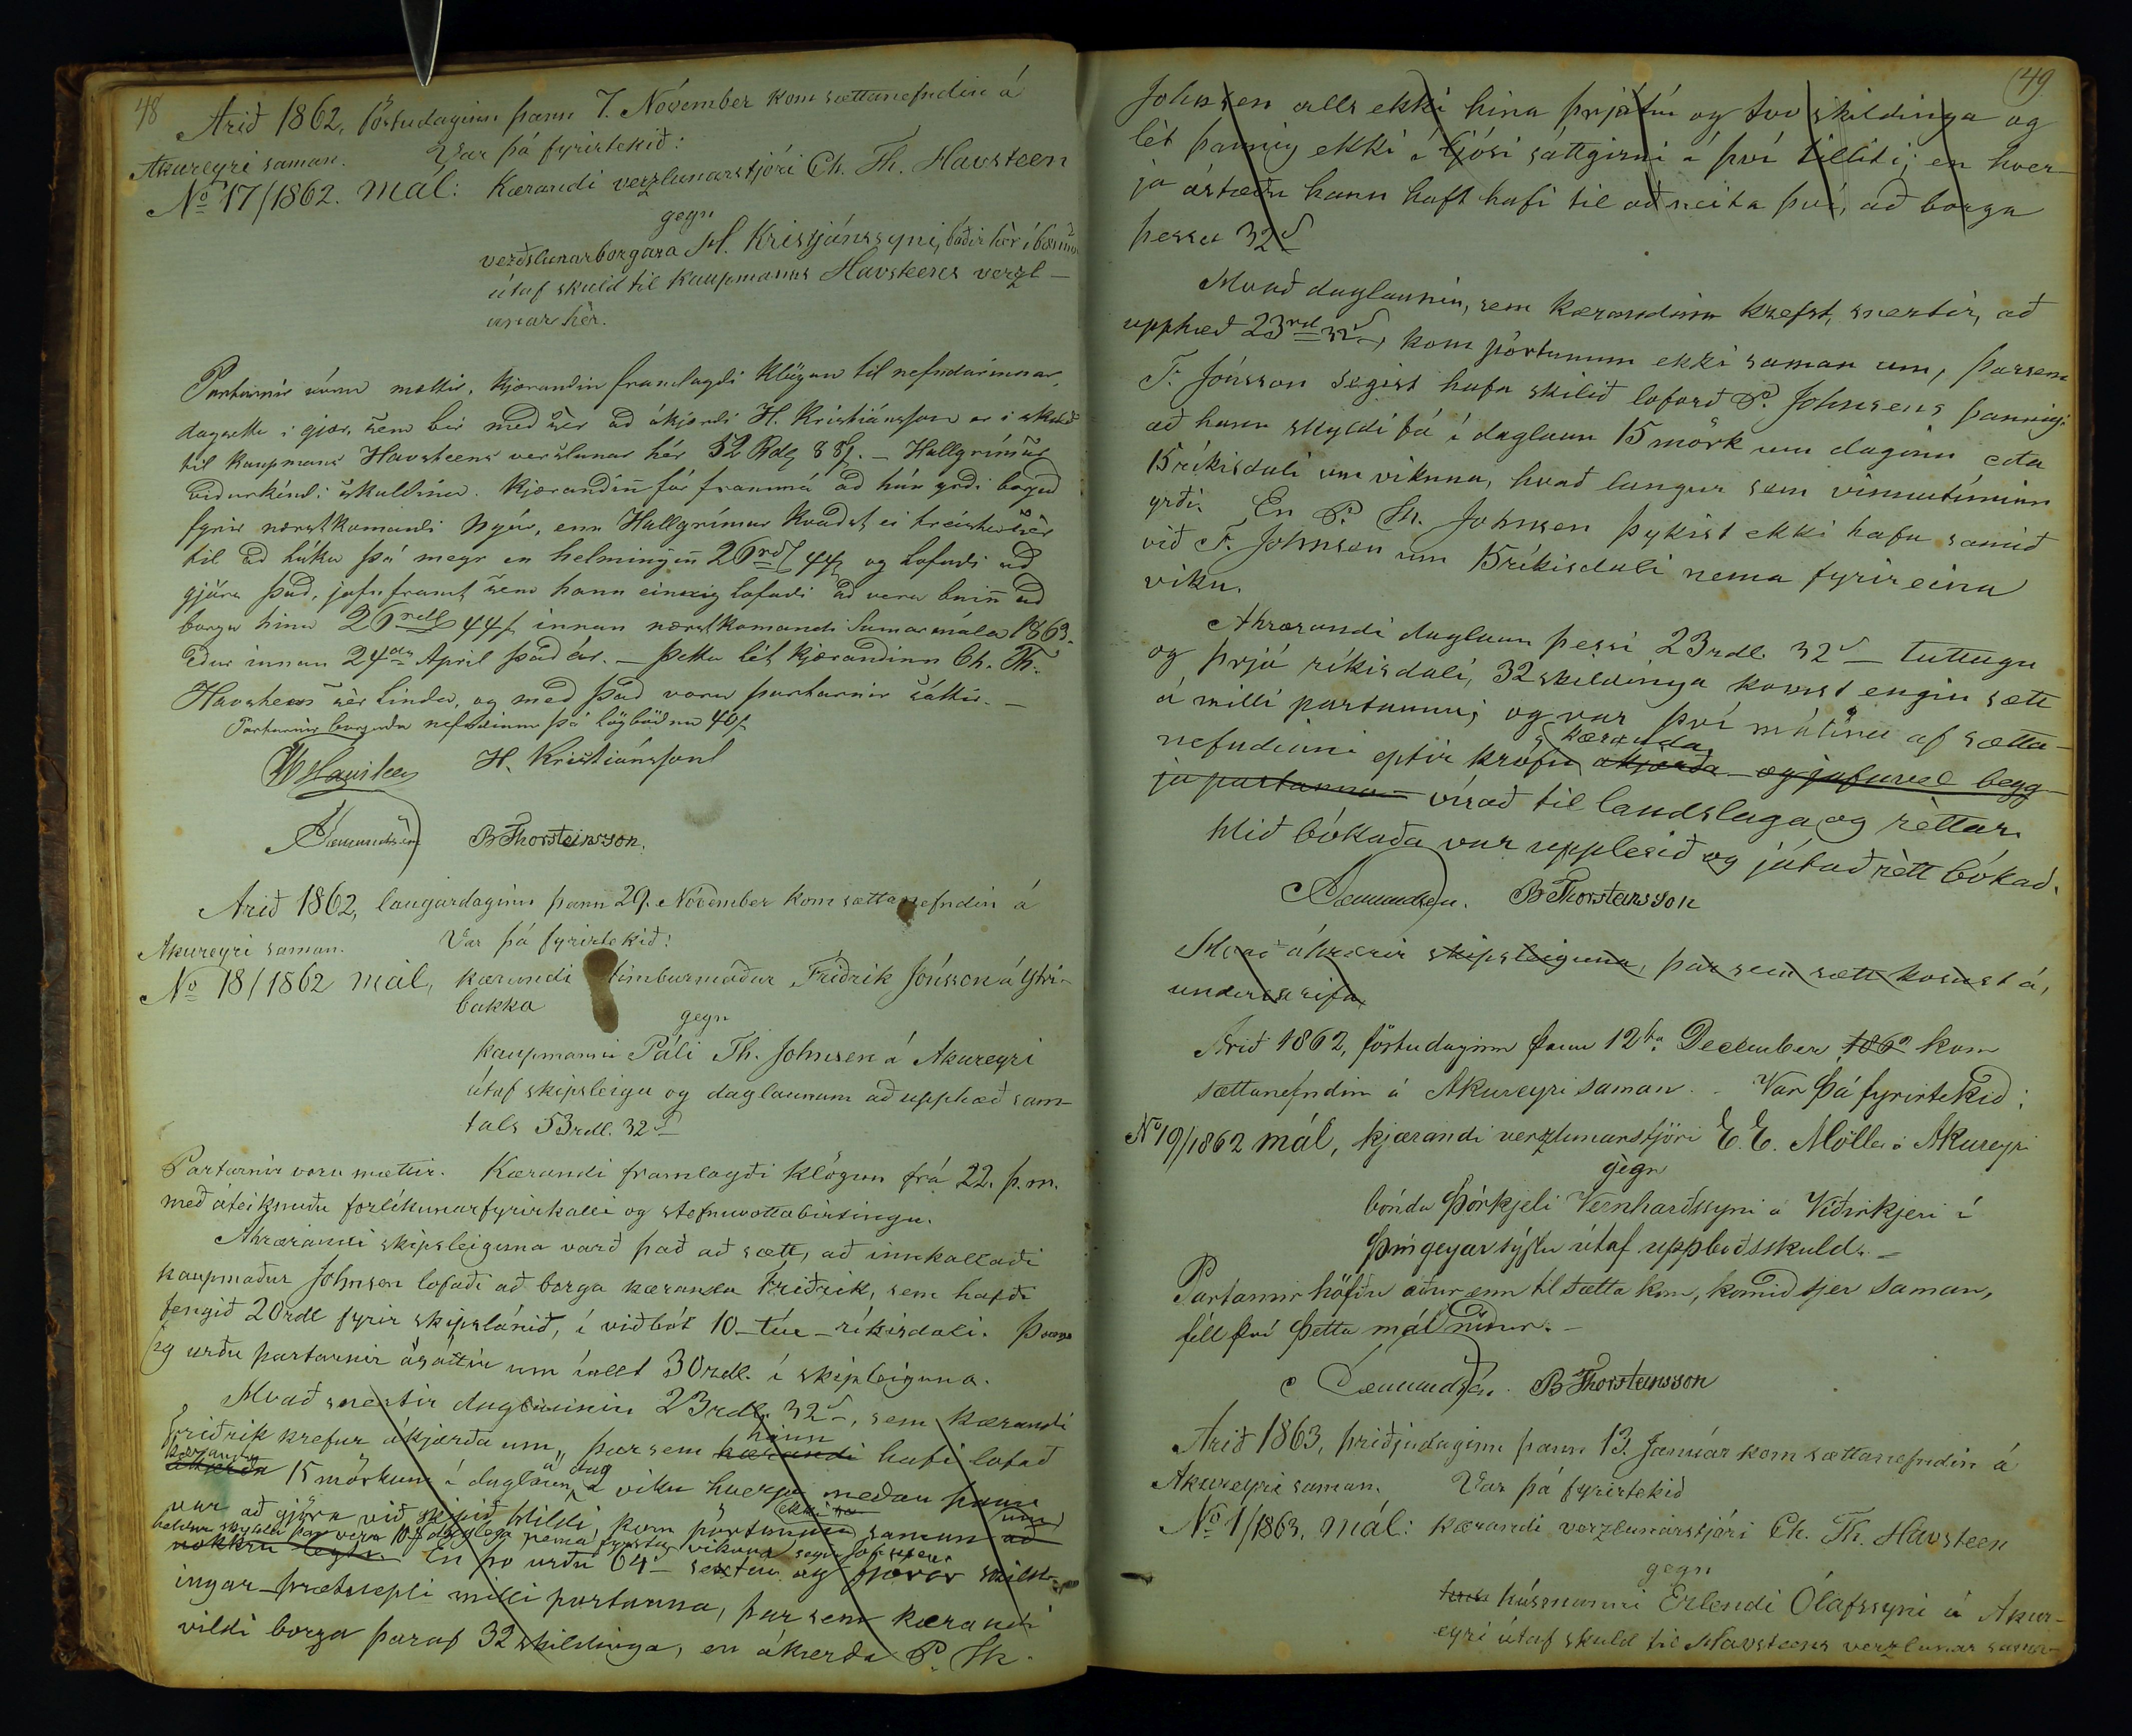 48
Árið 1862, föstudaginn þann 7. Nóvember kom sættanefndin á
Akureyri saman. Var þá fyrirtekið:
No 17/1862. mál: Kærandi verzlunarstjóri Ch. Th. Havsteen
gegn
verðslunarborgara H. Kristjánssyni, báðir hér í bænum
útaf skuld til kaupmanns Havsteens verzl-
unar hér.
Partarnir vóru mættir, kjærandin framlagdi klögun til nefndarinnar,
dagsetta i gjær, sem ber med sér ad ákjærdi H. Kristiánsson er i skuld
til kaupmans Havsteens verslunar hér 52 Rdl 88 s. - Hallgrímur
vidurkéndi skuldina. Kjærandinn fór framm á ad hún yrdi borgud
fyrir næstkomandi Nyár, enn Hallgrímur kvadst ei treista sér
til ad lúka þá meyr en helminginn 26 rdl 44 s og lofadi ad
gjöra þad, jafnframt sem hann einnig lofadi ad vera buinn ad
borga hina 26 rdl 44 s innan næstkomandi Sumarmála 1863.
edur innan 24da April þad ár. - Þetta lét kjærandinn Ch. Th.
Havsteen sér linda, og med þad voru partarnir sáttir. -
Partarnir borgudu nefndinni þá lögbodnu 40 s
Havsteen H. Kristiánsson
Sæmundsen B Thorsteinsson.
Árið 1862, laugardaginn þann 29. Nóvember kom sættanefndin á
Akureyri saman. Var þá fyrirtekið:
No 18/1862 mál, kærandi timburmaður Friðrik Jónsson á Ytri-
bakka
gegn
kaupmanni Páli Th. Johnsen á Akureyri
útaf skipsleigu og daglaunum að upphæð sam-
tals 53 rdl. 32 s
Partarnir voru mættir. Kærandi framlagði klögun frá 22. þ.m.
með áteiknuðu forlíkunarfyrirkalli og stefnuvottabirtingu.
Áhrærandi skipsleiguna varð það að sætt, að innkallaði
kaupmaður Johnsen lofaði að borga kæranda Friðrik, sem hafði
fengið 20 rdl fyrir skipslánið, í viðbót 10 - tíu - ríkisdali. Þann-
ig urðu partarnir ásáttir um íallt 30 rdl. í skipleiguna.
Hvað snertir daglaunin 23 rdl. 32 s, sem kærandi
Friðrik krefur ákjærða um, þar sem kærandi hann hafi lofað
ákærða kæranda 15 mörkum í daglaun á dag í viku hverja meðan hann
var að gjöra við skipið Hildi, kom pörtunum ekki saman um að
heldur skyldu þar vera 10 daglega nema fyrstu vikuna segir Johnsen
nokkru leyti. En þó urðu 64 - sextíu og fjórar skild-
ingar þrætuepli milli partanna, þar sem kærandi
vildi borga þaraf 32 skildinga, en ákærða P. Th.
49
Johnsen alls ekki hina þrjátíu og tvo skildinga og
lét þannig ekki í ljósi sáttgirni í því tilliti; en hver-
ja ástæðu hann haft hafi til að neita því, að borga
þessa 32 s
Hvað daglaunin, sem kærandinn krefst, snertir, að
upphæð 23 rd 32 s, kom pörtunum ekki saman um, þarsem
F. Jónsson segist hafa skilið loforð P. Johnsens þannig:
að hann skyldi fá í daglaun 15 mörk um daginn eða
15 ríkisdali um vikuna, hvað langur sem vinnutíminn
yrði. En P. Th. Johnsen þykist ekki hafa samið
við F. Johnson um 15 ríkisdali nema fyrir eina
viku.
Áhrærandi daglaun þessi 23 rdl. 32 s - tuttugu
og þrjá ríkisdali, 32 skildinga komst engin sætt
á milli partanna; og var því málinu af sætta-
nefndinni eptir kröfu kæranda ákjærða og jafnvel begg-
ja partanna vísað til landslaga og réttar.
Hið bókaða var upplesið og játað rétt bókað.
Sæmundsen. B Thorsteinsson
Hvað áhrærir skipsleiguna, þar sem sætt komst á,
underskrifa
Árið 1862, föstudaginn þann 12ta December 1862 kom
sættanefndin á Akureyri saman. Var þá fyrirtekið:
No 19/1862 mál, kjærandi verzlunarstjóri E. E. Möller á Akureyri
gegn
bónda Þórkjeli Vernharðssyni á Víðirkjeri í
Þingeyarsýslu útaf uppboðsskuld. -
Partarnir höfðu áður enn til sætta kom, komið sjer saman,
féll því þetta mál niður. -
Sæmundsen. B Thorsteinsson
Árið 1863, þriðjudaginn þann 13. Januar kom sættanefndin á
Akureyri saman. Var þá fyrirtekið
No 1/1863, mál: kærandi verzlunarstjóri Ch. Th. Havsteen
gegn
húsmanni Erlendi Ólafssyni á Akur-
eyri útaf skuld til Havsteens verzlunar sama-